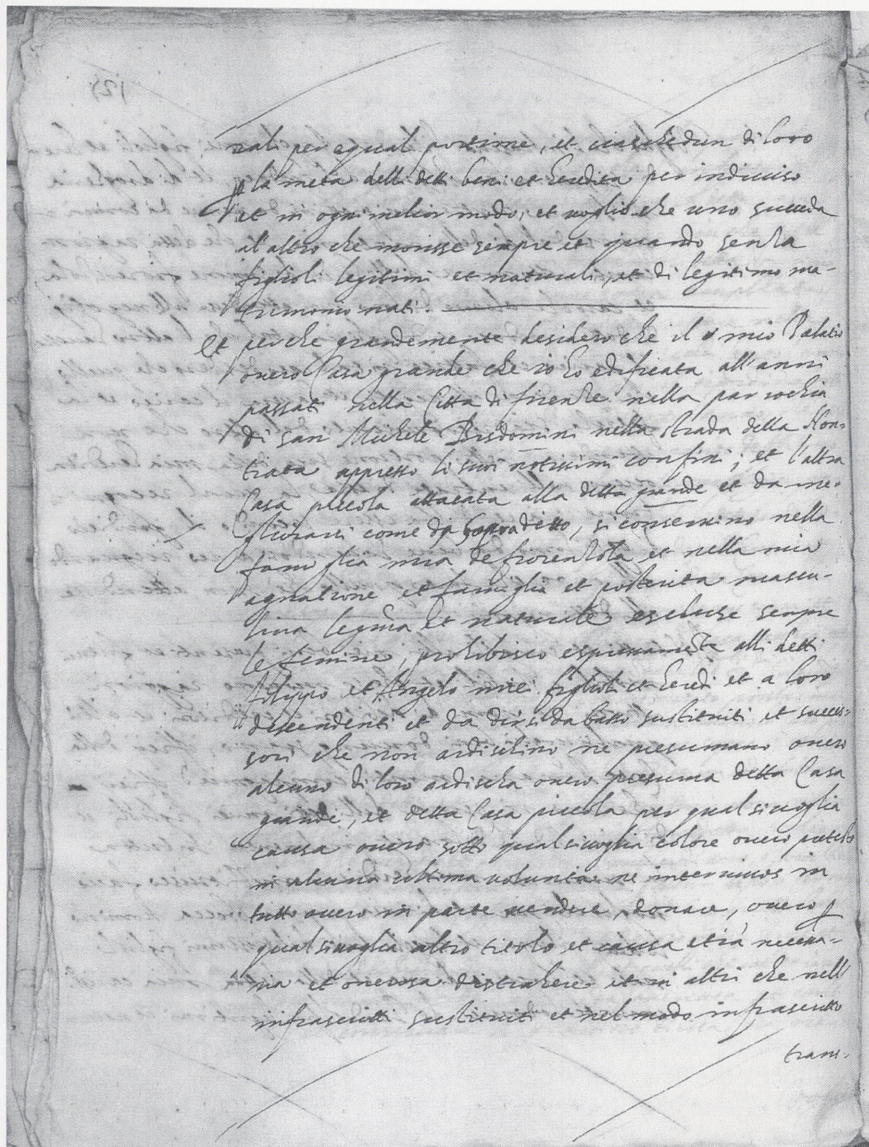 rali per egual portione, et ciaschedun di loro
p la meta delli detti beni et heredita per indiviso
et in ogni melior modo, et voglio che uno succeda
al altro che morisse sempre et quando senza
figlioli legitimi et naturali, et di legitimo ma-
trimonio nati.
Et perche grandemente desidero che il mio Palatio
overo Casa grande che io ho edificata all'anni
passati nella Citta di firenze nella parrochia
di san Michele Bisdomini nella strada della Non-
tiata appresso li suoi notissimi confini, et l'altra
Casa piccola attacata alla detta grande et da me-
gliorarsi come da sopradetto, si conservino nella
famiglia mia de fiorenzola et nella mia
agnatione et famiglia et posterita mascu-
lina legma et naturale escluse sempre
le femine, prohibisco espressamte alli detti
filippo et Angelo miei figlioli et heredi et a loro
descendenti et da dirsi da basso sustituiti et succes-
sori che non ardischino ne presumano overo
alcuno di loro ardischa overo presuma detta Casa
grande, et detta Casa piccola per qual sivoglia
causa overo sotto qual sivoglia colore overo pretesto
in alcuna ultima volunta ne intervivos in
tutto overo in parte vendere, donare, overo p
qual sivoglia altro titolo et causa etia necessa-
ria et onerosa distrahere et in altri che nell'
infrascritti sustituiti et nel modo infrascritto
tran-